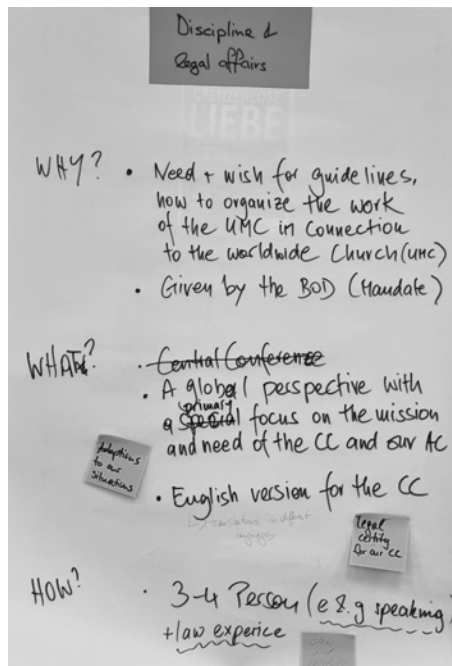 Discipline &
legal affairs
GRENZENLOSE
LIEBE
WHY? • Need + wish for guidelines,
how to organize the work
of the UMC in connection
to the worldwide Church (UMC)
• Given by the BOD (Mandate)
WHAT? • Central Conference
• A global perspective with
primary
a special focus on the mission
and need of the CC and our AC
Adaptions
to our
situations
• English version for the CC
translations in different
languages
legal
certity
for our CC
HOW? • 3-4 Person (e.g speaking)
+ law experice